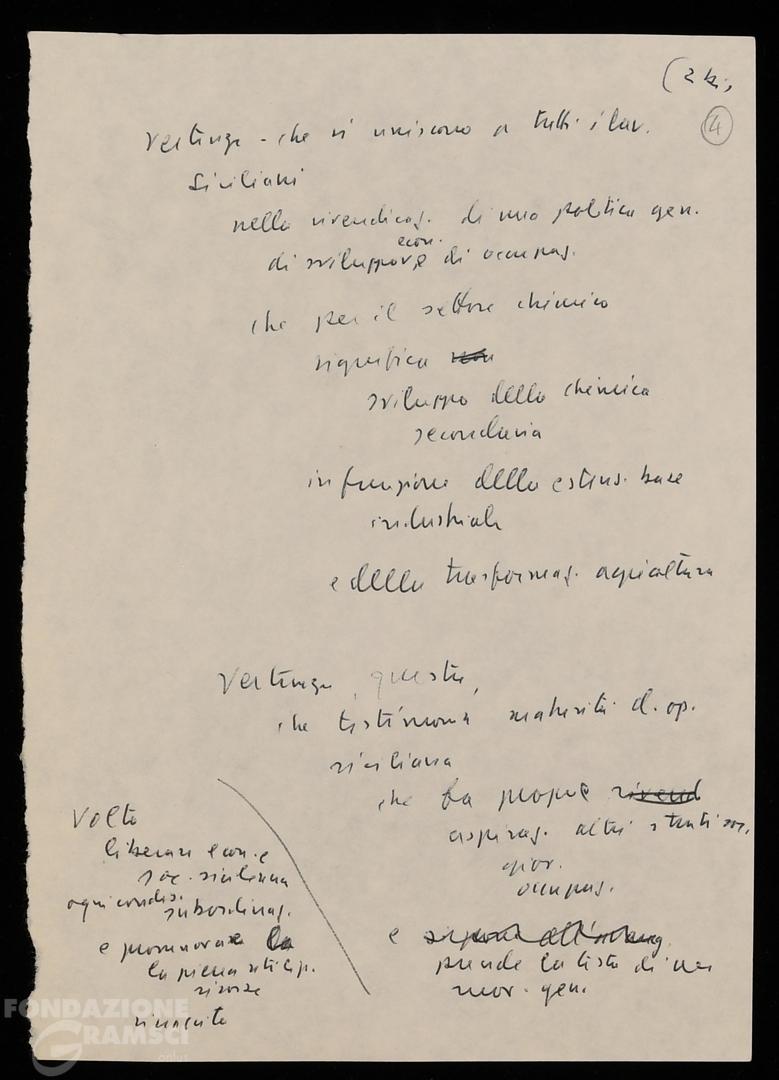 (2 bis
4
Vertenza - che si uniscono a tutti i lav.
siciliani
nella rivendicaz. di una politica gen.
econ.
di sviluppo e di occupaz.
che per il settore chimico
significa non
sviluppo della chimica
secondaria
in funzione della estens. base
industriale
e della trasformaz. agricoltura
Vertenza, questa,
che testimonia maturità cl. op.
siciliana
che fa proprie rivend
aspiraz. altri strati soc.
giov.
occupaz.
e
prende la testa di un
mov. gen.
Volta
liberare econ. e
soc. siciliana
ogni condiz.
subordinaz.
e promuovere la
la piena utiliz.
risorse
FONDAZIONE
GRAMSCI
onlus